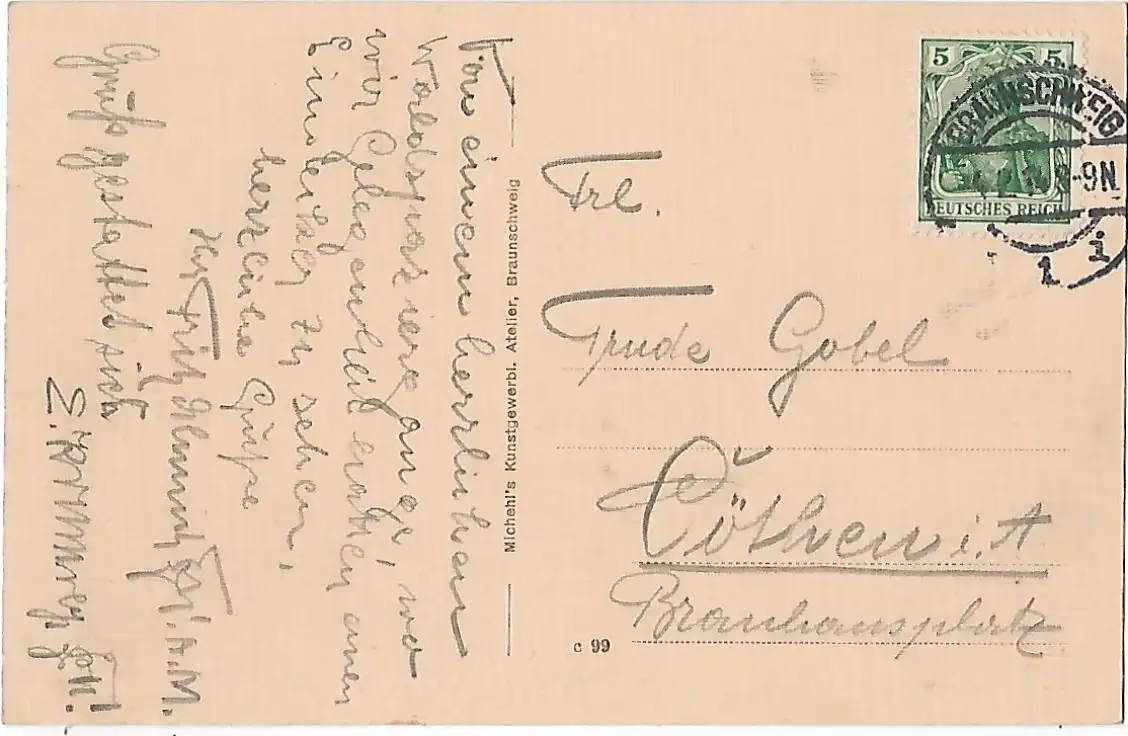 Von einem herrlichen
Waldspaziergange, wo
wir Gelegenheit hatten einen
Eimdecker zu sehen,
herzliche Grüße
Fritz
Gruß gestattet sich
Michehl's Kunstgewerbl. Atelier, Braunschweig
5 5
DEUTSCHES REICH
BRAUNSCHWEIG
8-9N.
1 i
Frl.
Trude Gobel
Cöthen i. A
Brauhausplatz
c 99